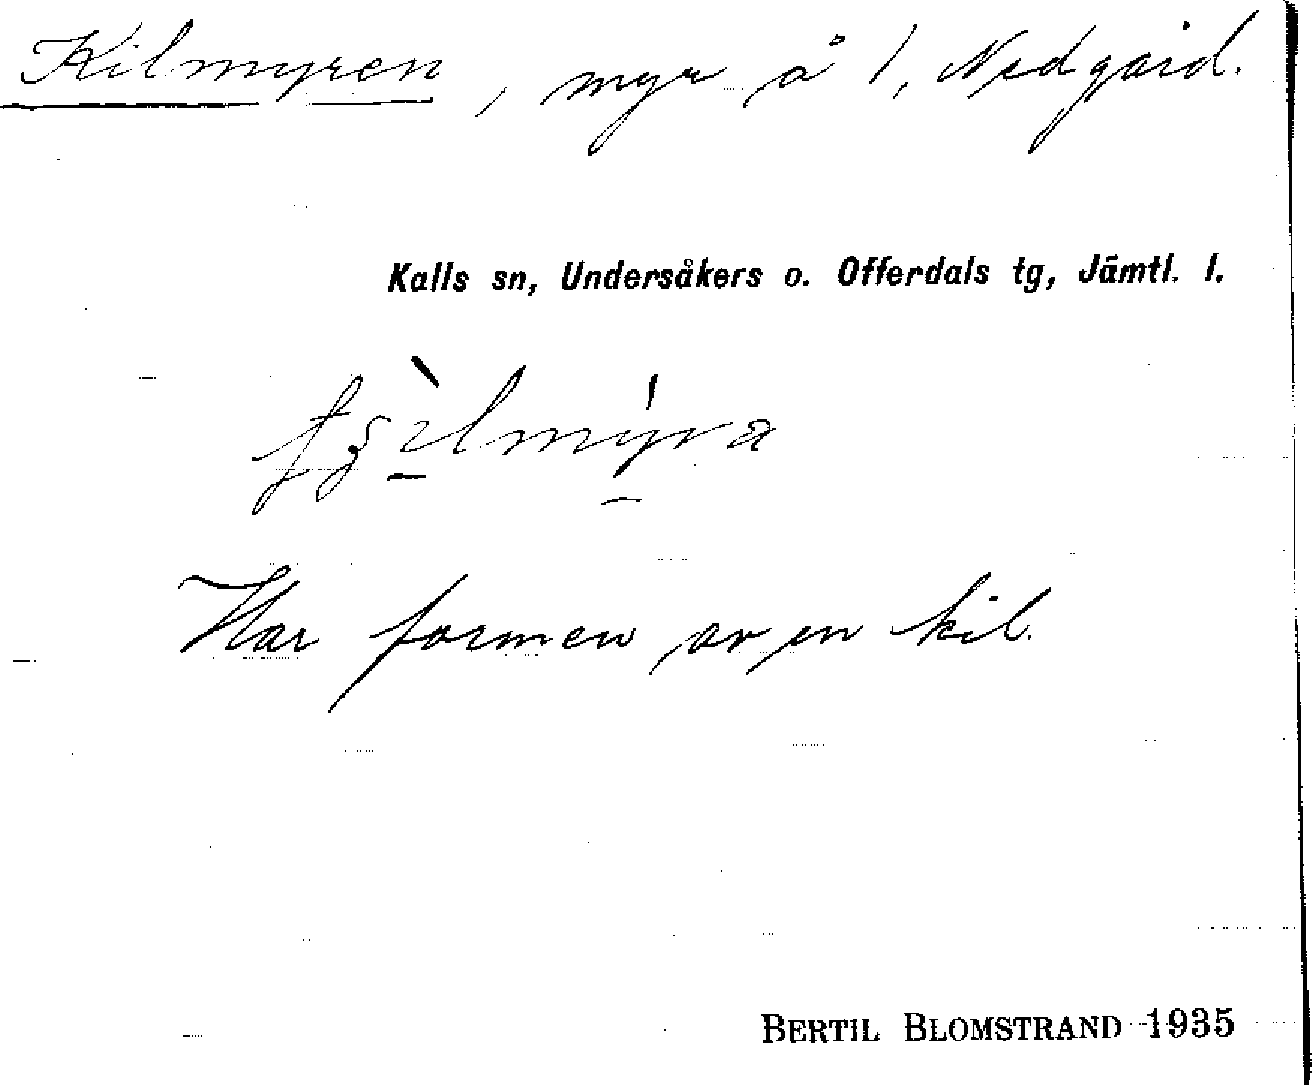 Kilmyren, myr å 1, Nedgård.
Kalls sn, Undersåkers o. Offerdals tg, Jämtl. l.
Har formen av en kil.
BERTIL BLOMSTRAND 1935